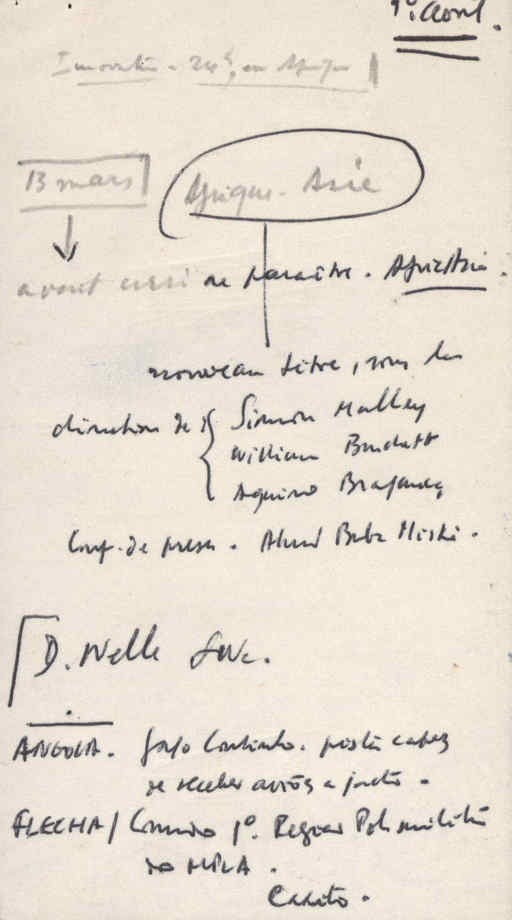 1º. avril.
en Afrique
13 mars
Afrique-Asie
avant cessé de paraître. AfricAsia.
nouveau titre, sous la
direction de : Simon Malley
William Burchett
Aquino Bragança
Conf. de presse. Ahmed Baba Miské.
D.
ANGOLA. Gago Coutinho. pista capaz
de receber aviões a jacto.
FLECHA / Comício 1º. Região Pol. militar
do MPLA.